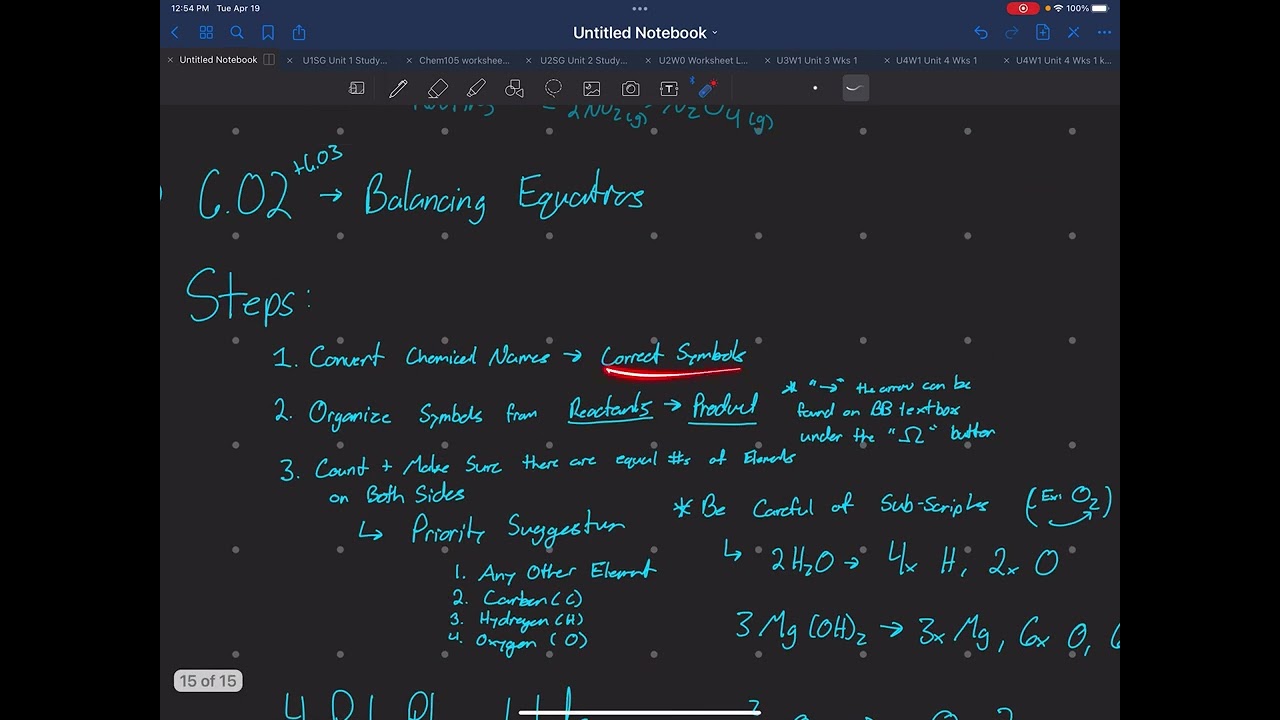 12:54 PM Tue Apr 19
100%
Untitled Notebook
Untitled Notebook
U1SG Unit 1 Study...
Chem105 workshee...
U2SG Unit 2 Study...
U2W0 Worksheet L...
U3W1 Unit 3 Wks 1
U4W1 Unit 4 Wks 1
U4W1 Unit 4 Wks 1 k...
2NO2(g) N2O4(g)
6.02 +6.03 → Balancing Equations
Steps:
1. Convert Chemical Names → Correct Symbols
2. Organize Symbols from Reactants → Product
* "→" the arrow can be
found on BB textbox
under the "Ω" button
3. Count + Make Sure there are equal #s of Elements
on Both Sides
↳ Priority Suggestion
1. Any Other Element
2. Carbon (C)
3. Hydrogen (H)
4. Oxygen (O)
* Be Careful of Sub-Scripts (Ex: O2)
↳ 2H2O → 4x H, 2x O
3Mg(OH)2 → 3x Mg, 6x O, 6
15 of 15